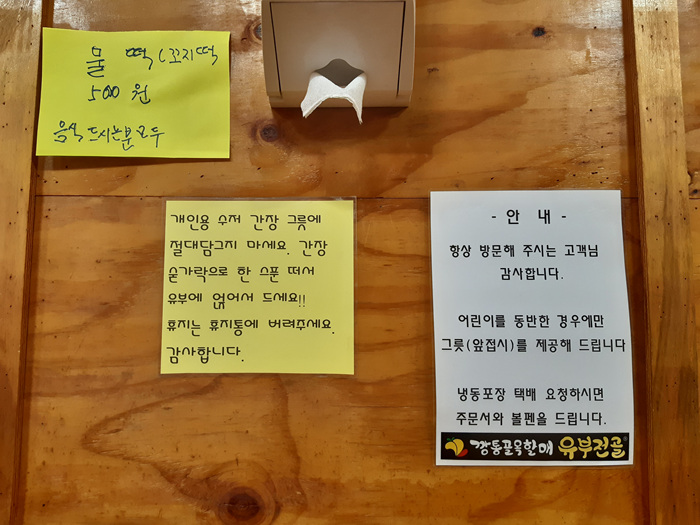 물 떡 (꼬지떡
500원
음식 드시는분 모두
개인용 수저 간장 그릇에
절대담그지 마세요. 간장
숟가락으로 한 스푼 떠서
유부에 얹어서 드세요!!
휴지는 휴지통에 버려주세요.
감사합니다.
- 안 내 -
항상 방문해 주시는 고객님
감사합니다.
어린이를 동반한 경우에만
그릇(앞접시)를 제공해 드립니다
냉동포장 택배 요청하시면
주문서와 볼펜을 드립니다.
깡통골목할매 유부전골